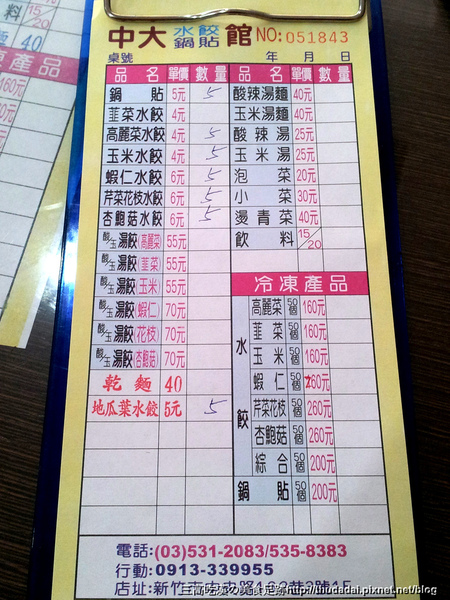 料 15/20
麵 40
產品
160元
中大 水餃 鍋貼 館 NO: 051843
桌號 年 月 日
品名 單價 數量 品名 單價 數量
鍋貼 5元 5 酸辣湯麵 40元
韮菜水餃 4元 玉米湯麵 40元
高麗菜水餃 4元 5 酸辣湯 25元
玉米水餃 4元 5 玉米湯 25元
蝦仁水餃 6元 5 泡菜 20元
芹菜花枝水餃 6元 5 小菜 30元
杏鮑菇水餃 6元 5 燙青菜 40元
酸/玉 湯餃(高麗菜) 55元 飲料 15/20
酸/玉 湯餃(韮菜) 55元
酸/玉 湯餃(玉米) 55元 冷凍產品
酸/玉 湯餃(蝦仁) 70元 水餃 高麗菜 50個 160元
酸/玉 湯餃(花枝) 70元 韮菜 50個 160元
酸/玉 湯餃(杏鮑菇) 70元 玉米 50個 160元
乾麵 40 蝦仁 50個 260元
地瓜葉水餃 5元 5 芹菜花枝 50個 260元
杏鮑菇 50個 260元
綜合 50個 200元
鍋貼 50個 200元
電話:(03)531-2083/535-8383
行動:0913-339955
店址:新竹市
http://thudadai.pixnet.net/blog